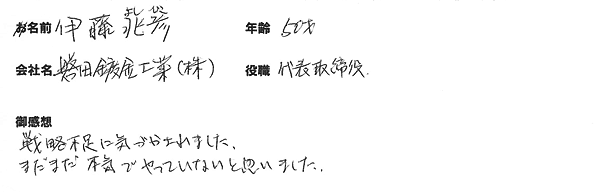 お名前 伊藤兆彦 年齢 50才
会社名 磐田鍍金工業(株) 役職 代表取締役
御感想
戦略不足に気づかされました。
まだまだ本気でやっていないと思いました。